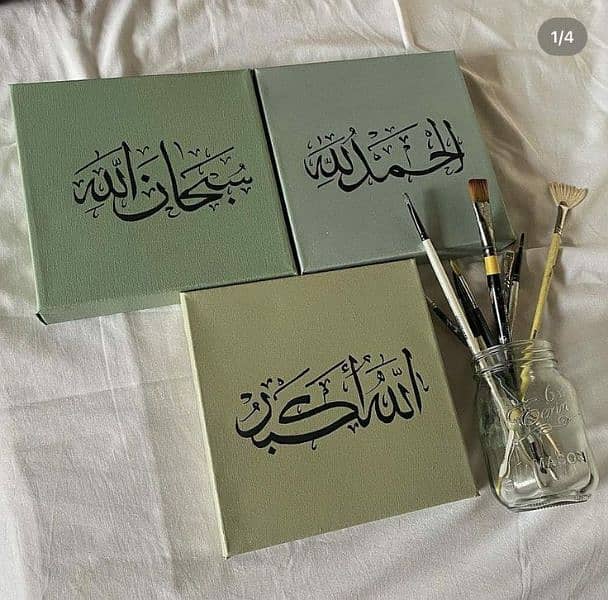 1/4
سُبْحَانَ اللَّه
الْحَمْدُ لِلَّهِ
اللَّهُ أَكْبَرُ
MASON